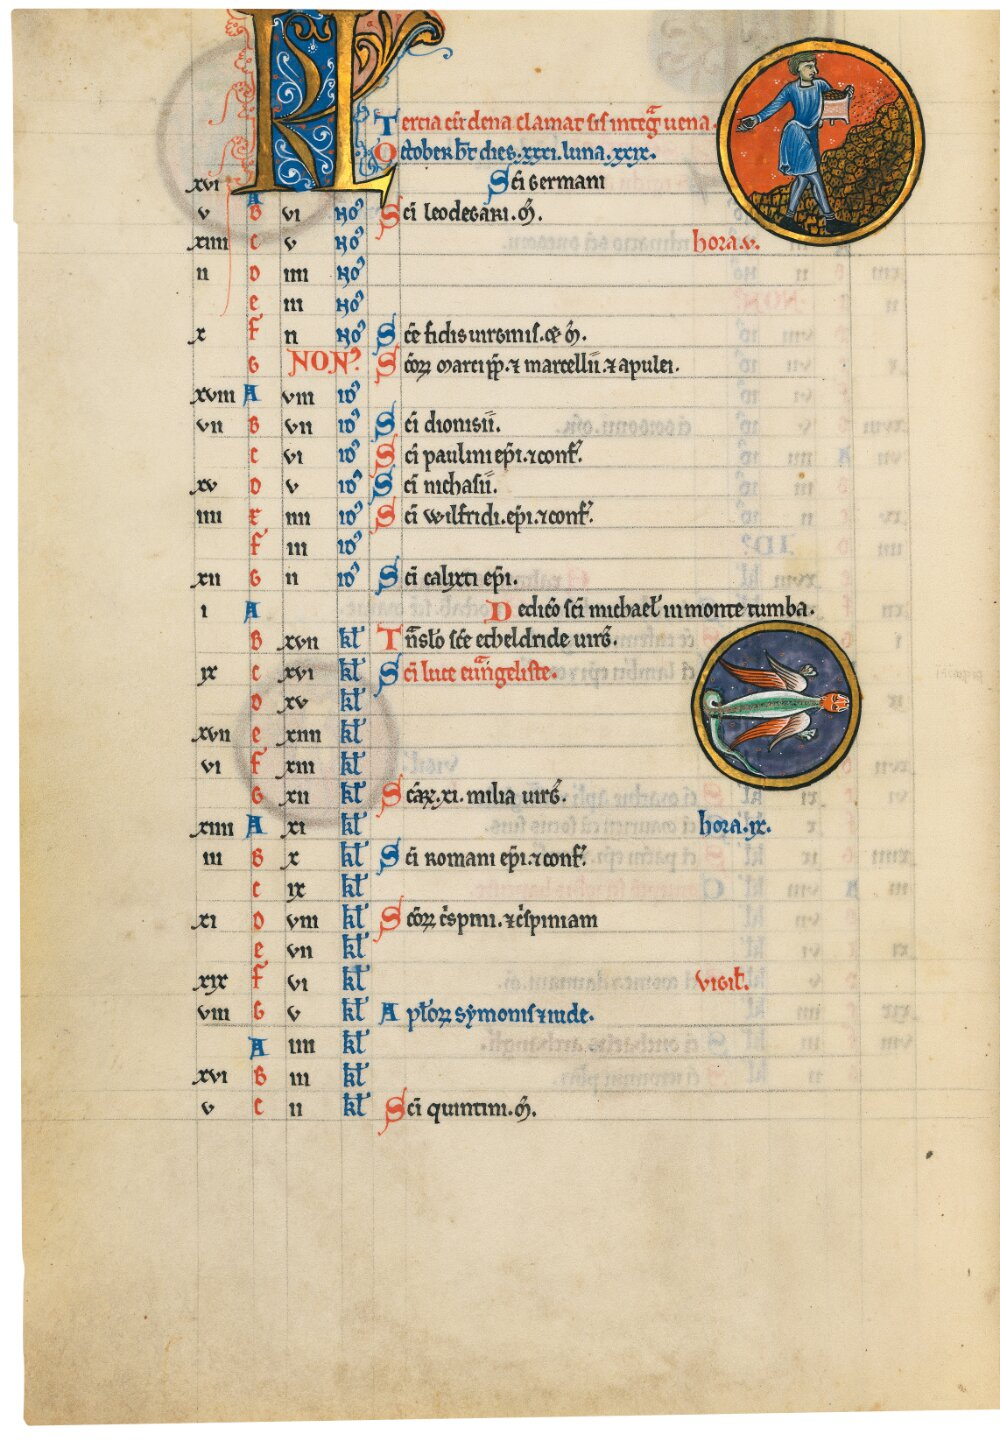 KL
Tercia cū dena clamat sis integra uena.
October h̄t dies .xxxi. luna .xxix.
xvi A Sc̄i Germani
v B vi no᷒ Sc̄i leodegarı. m̄.
xiiii c v no᷒ hora .v.
ii D iiii no᷒
e iii no᷒
x f ii no᷒ Sc̄e fidis uirginis. & m̄.
G NON᷒ Sc̄oꝝ Marci p̄p. ⁊ marcellii. ⁊ apulei.
xviii A viii id᷒
vii B vii id᷒ Sc̄i dionisii.
c vi id᷒ Sc̄i paulini ep̄i. ⁊ conf̄.
xv D v id᷒ Sc̄i nichasii.
iiii e iiii id᷒ Sc̄i Wilfridi. ep̄i. ⁊ conf̄.
f iii id᷒
xii G ii id᷒ Sc̄i calixti ep̄i.
i A Dedic̄o sc̄i michael' in monte tumba.
B xvii kl' T̄nslō sc̄e etheldride uirḡ.
ix c xvi kl' Sc̄i luce eu̅ngeliste.
D xv kl'
xvii e xiiii kl'
vi f xiii kl'
G xii kl' Sc̄aꝝ .xi. milia uirḡ.
xiiii A xi kl' hora .ix.
iii B x kl' Sc̄i Romani ep̄i. ⁊ conf̄.
c ix kl'
xi D viii kl' Sc̄oꝝ c̄spini. ⁊ c̄spiniani
e vii kl'
xix f vi kl' Vigil'.
viii G v kl' Apl'oꝝ symonis ⁊ iude.
A iiii kl'
xvi B iii kl'
v c ii kl' Sc̄i quintini. m̄.